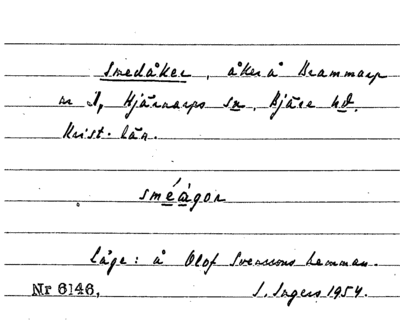 Smedåker, åker å Drammarp
nr 1, Hjärnarps sn. Bjäre hd.
Krist. län.
sméågor
Läge: å Olof Svenssons hemman.
Nr 6146. S. Ingers 1954.